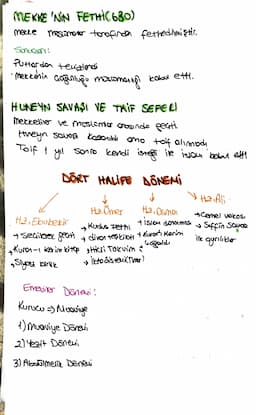 MEKKE'NİN FETHİ(630)
mekke müslümanlar tarafından fethedilmiştir.
Sonuçları:
Putlardan temizlendi
Mekkenin çoğunluğu müslümanlığı kabul etti.
HUNEYN SAVAŞI VE TAİF SEFERİ
Mekkeliler ve müslümanlar arasında geçti.
Huneyn savaşı kazanıldı ama taif alınmadı
Taif 1 yıl sonra kendi isteği ile islamı kabul etti
DÖRT HALİFE DÖNEMİ
Hz. Ebubekir
→ Seçilerek geçti
→ Kuran-ı kerim kitap
→ Siyasi birlik
Hz. Ömer
→ Kudüs Fethi
→ divan teşkilatı
→ Hicri Takvim
→ İkta sistemi
Hz. Osman
→ İslam donanması
→ Kuran-ı Kerim
çoğaldı
Hz. Ali
→ Cemel vakası
→ Sıffin Savaşı
ilk ayrılıklar
Emeviler Dönemi:
Kurucu ⇒ Muaviye
1) Muaviye Dönemi
2) Yezit Dönemi
3) Abdülmelik Dönemi